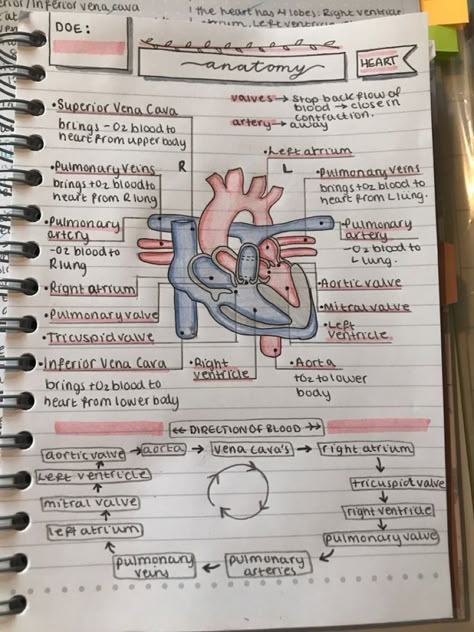 rior/Inferior vena cava
! the heart has 4 lobes: Right ventricle
Left ventri
DOE:
anatomy
HEART
valves → stop back flow of
blood → close in
contraction.
artery → away
•Superior Vena Cava
brings -O2 blood to
heart from upper body
•Pulmonary Veins
brings +O2 blood to
heart from R lung
•Pulmonary
artery
-O2 blood to
R lung
•Right atrium
•Pulmonary valve
•Tricuspid valve
•Inferior Vena Cava
brings +O2 blood to
heart from lower body
R
L
•Left atrium
•Pulmonary veins
brings +O2 blood to
heart from L lung.
•Pulmonary
artery
-O2 blood to
L lung.
•Aortic valve
•Mitral valve
•Left
ventricle.
•Right
ventricle
•Aorta
+O2 to lower
body
←← DIRECTION OF BLOOD →→
aortic valve → aorta → vena cava's → right atrium
tricuspid valve
right ventricle
pulmonary valve
pulmonary
arteries
pulmonary
veins
left atrium
mitral valve
Left ventricle